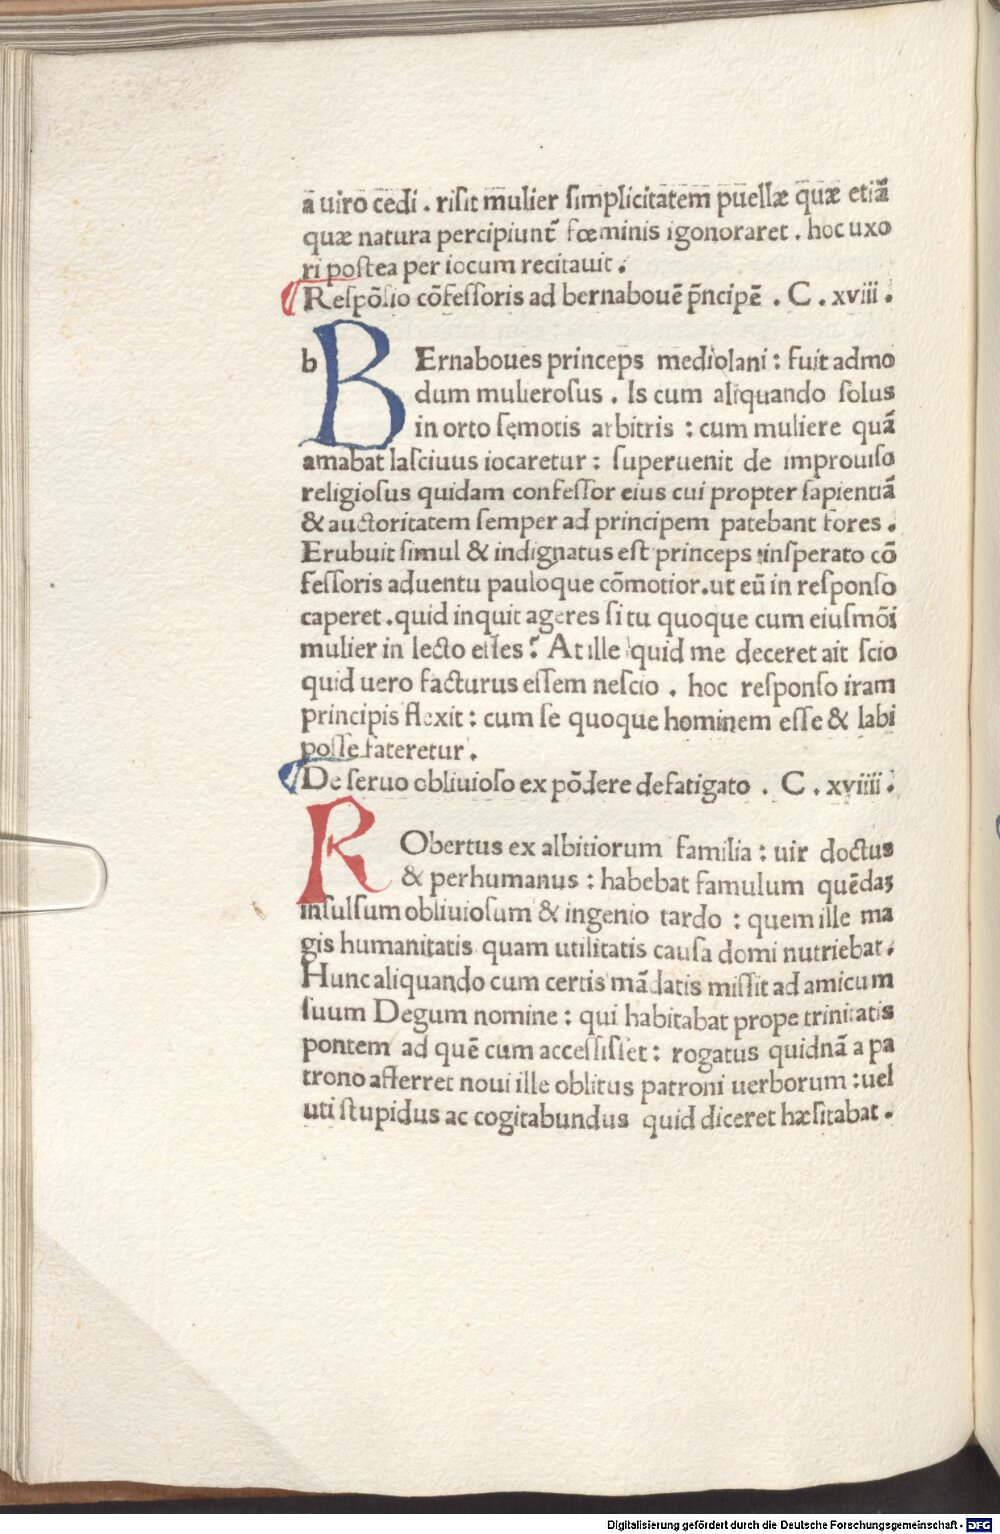 ā uiro cedi . risit mulier simplicitatem puellæ quæ etiā
quæ natura percipiunt̄ fœminis igonoraret . hoc uxo
ri postea per iocum recitauit .
Respōsio cōfessoris ad bernabouē p̄ncipē . C . xviii .
b BErnaboues princeps mediolani : fuit admo
dum mulierosus . Is cum aliquando solus
in orto sęmotis arbitris : cum muliere quā
amabat lasciuus iocaretur : superuenit de improuiso
religiosus quidam confessor eius cui propter sapientiā
& auctoritatem semper ad principem patebant fores .
Erubuit simul & indignatus est princeps insperato cō
fessoris aduentu pauloque cōmotior . ut eū in responso
caperet . quid inquit ageres si tu quoque cum eiusmōi
mulier in lecto esses ? At ille quid me deceret ait scio
quid uero facturus essem nescio . hoc responso iram
principis flexit : cum se quoque hominem esse & labi
posse fateretur .
De seruo obliuioso ex pōdere defatigato . C . xviiii .
RObertus ex albitiorum familia : uir doctus
& perhumanus : habebat famulum quēdaꝫ
insulsum obliuiosum & ingenio tardo : quem ille ma
gis humanitatis quam utilitatis causa domi nutriebat .
Hunc aliquando cum certis mādatis missit ad amicum
suum Degum nomine : qui habitabat prope trinitatis
pontem ad quē cum accessisset : rogatus quidnā a pa
trono afferret noui ille oblitus patroni uerborum : uel
uti stupidus ac cogitabundus quid diceret hæsitabat .
Digitalisierung gefördert durch die Deutsche Forschungsgemeinschaft - DFG